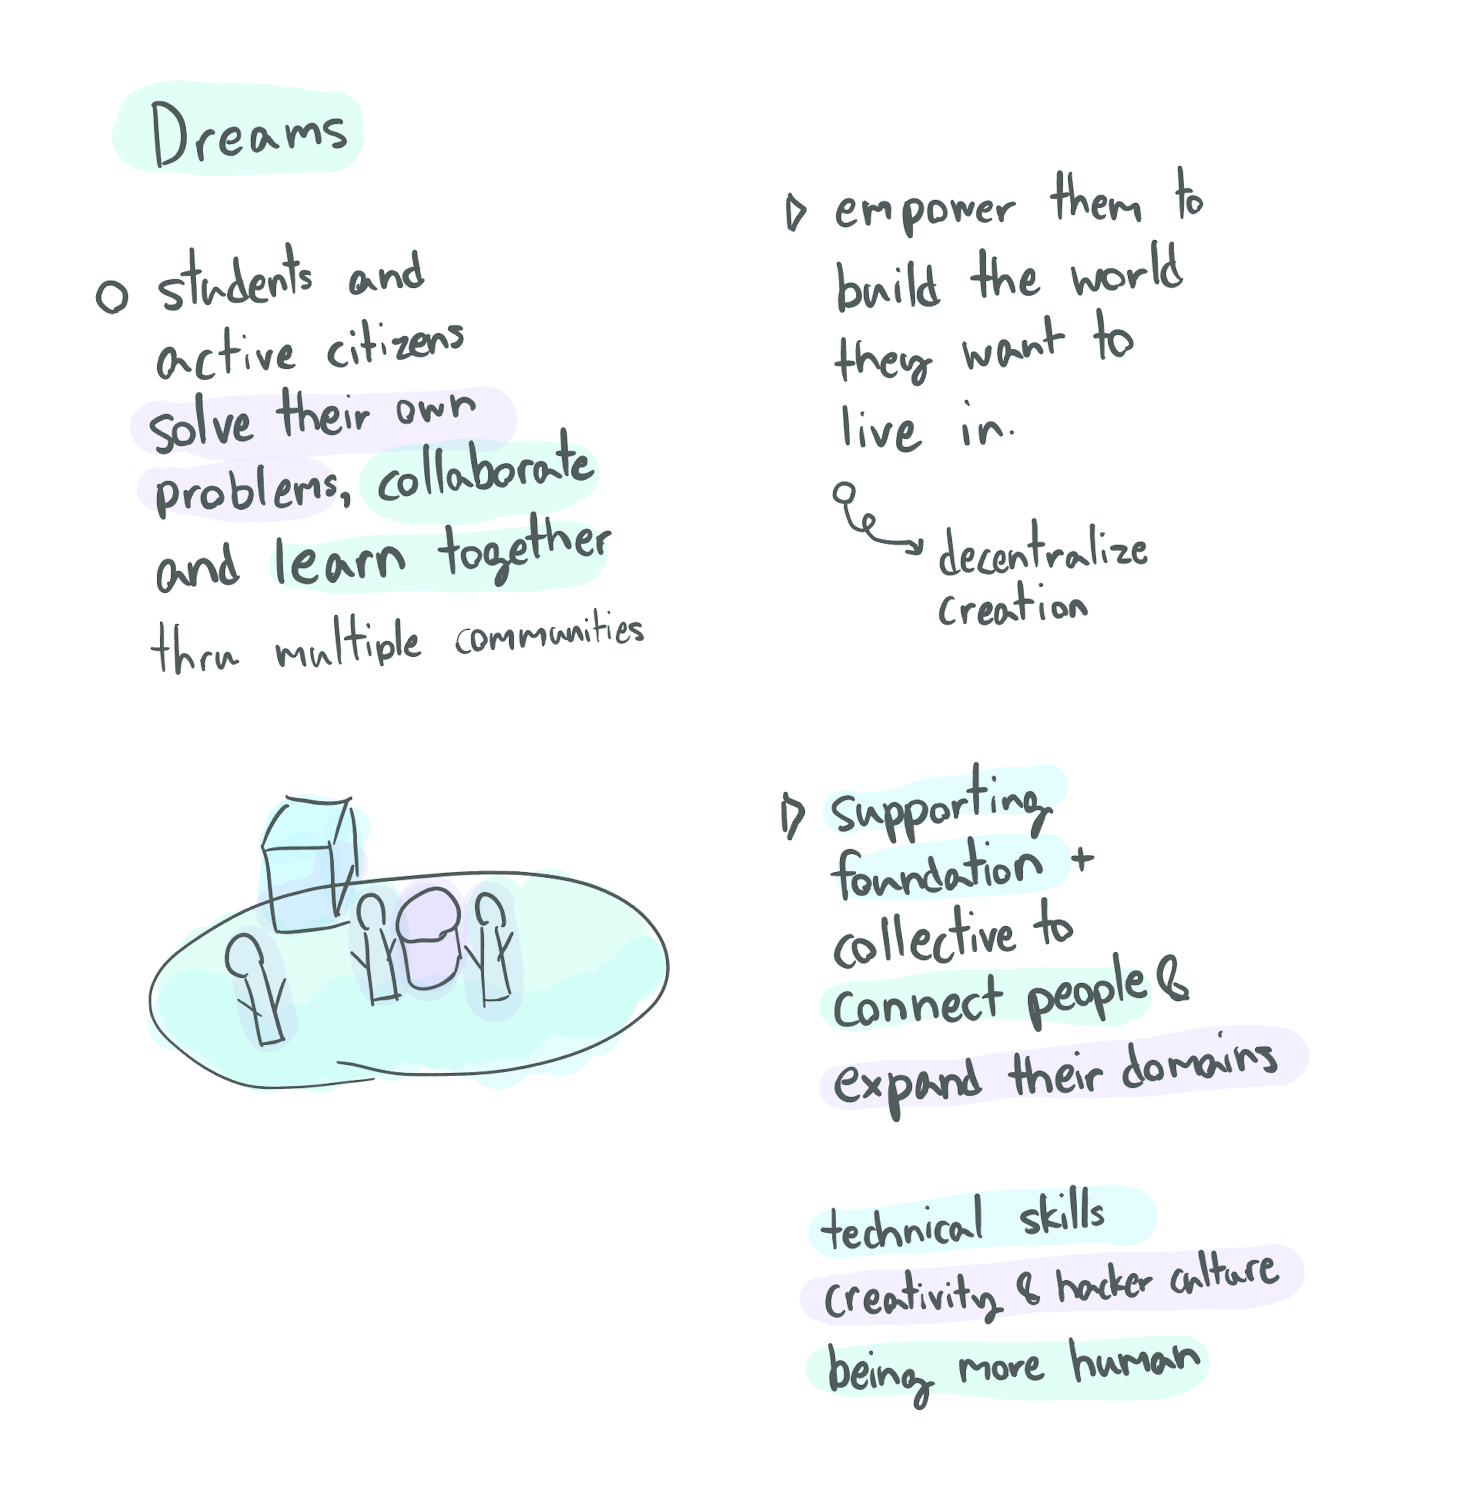 Dreams
students and
active citizens
solve their own
problems, collaborate
and learn together
thru multiple communities
empower them to
build the world
they want to
live in.
decentralize
creation
supporting
foundation +
collective to
connect people &
expand their domains
technical skills
creativity & hacker culture
being more human